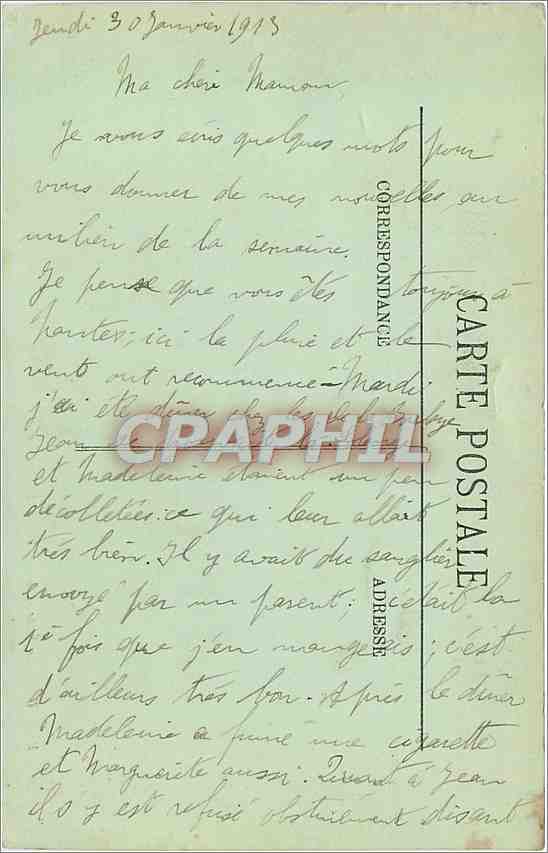 Jeudi 30 Janvier 1913
Ma chère Maman,
Je vous écris quelques mots pour
vous donner de mes nouvelles, au
milieu de la semaine.
Je pense que vous êtes toujours à
Nantes; ici la pluie et le
vent ont recommencé - Mardi
j'ai été dîner chez les de la
Jean
et Madeleine étaient un peu
décolletées: ce qui leur allait
très bien. Il y avait du sanglier
envoyé par un parent; c'était la
1è fois que j'en mangeais; c'est
d'ailleurs très bon. Après le dîner
Madeleine a fumé une cigarette
et Marguerite aussi. Quant à Jean
il s'y est refusé obstinément disant
CARTE POSTALE
CORRESPONDANCE
ADRESSE
CPAPHIL